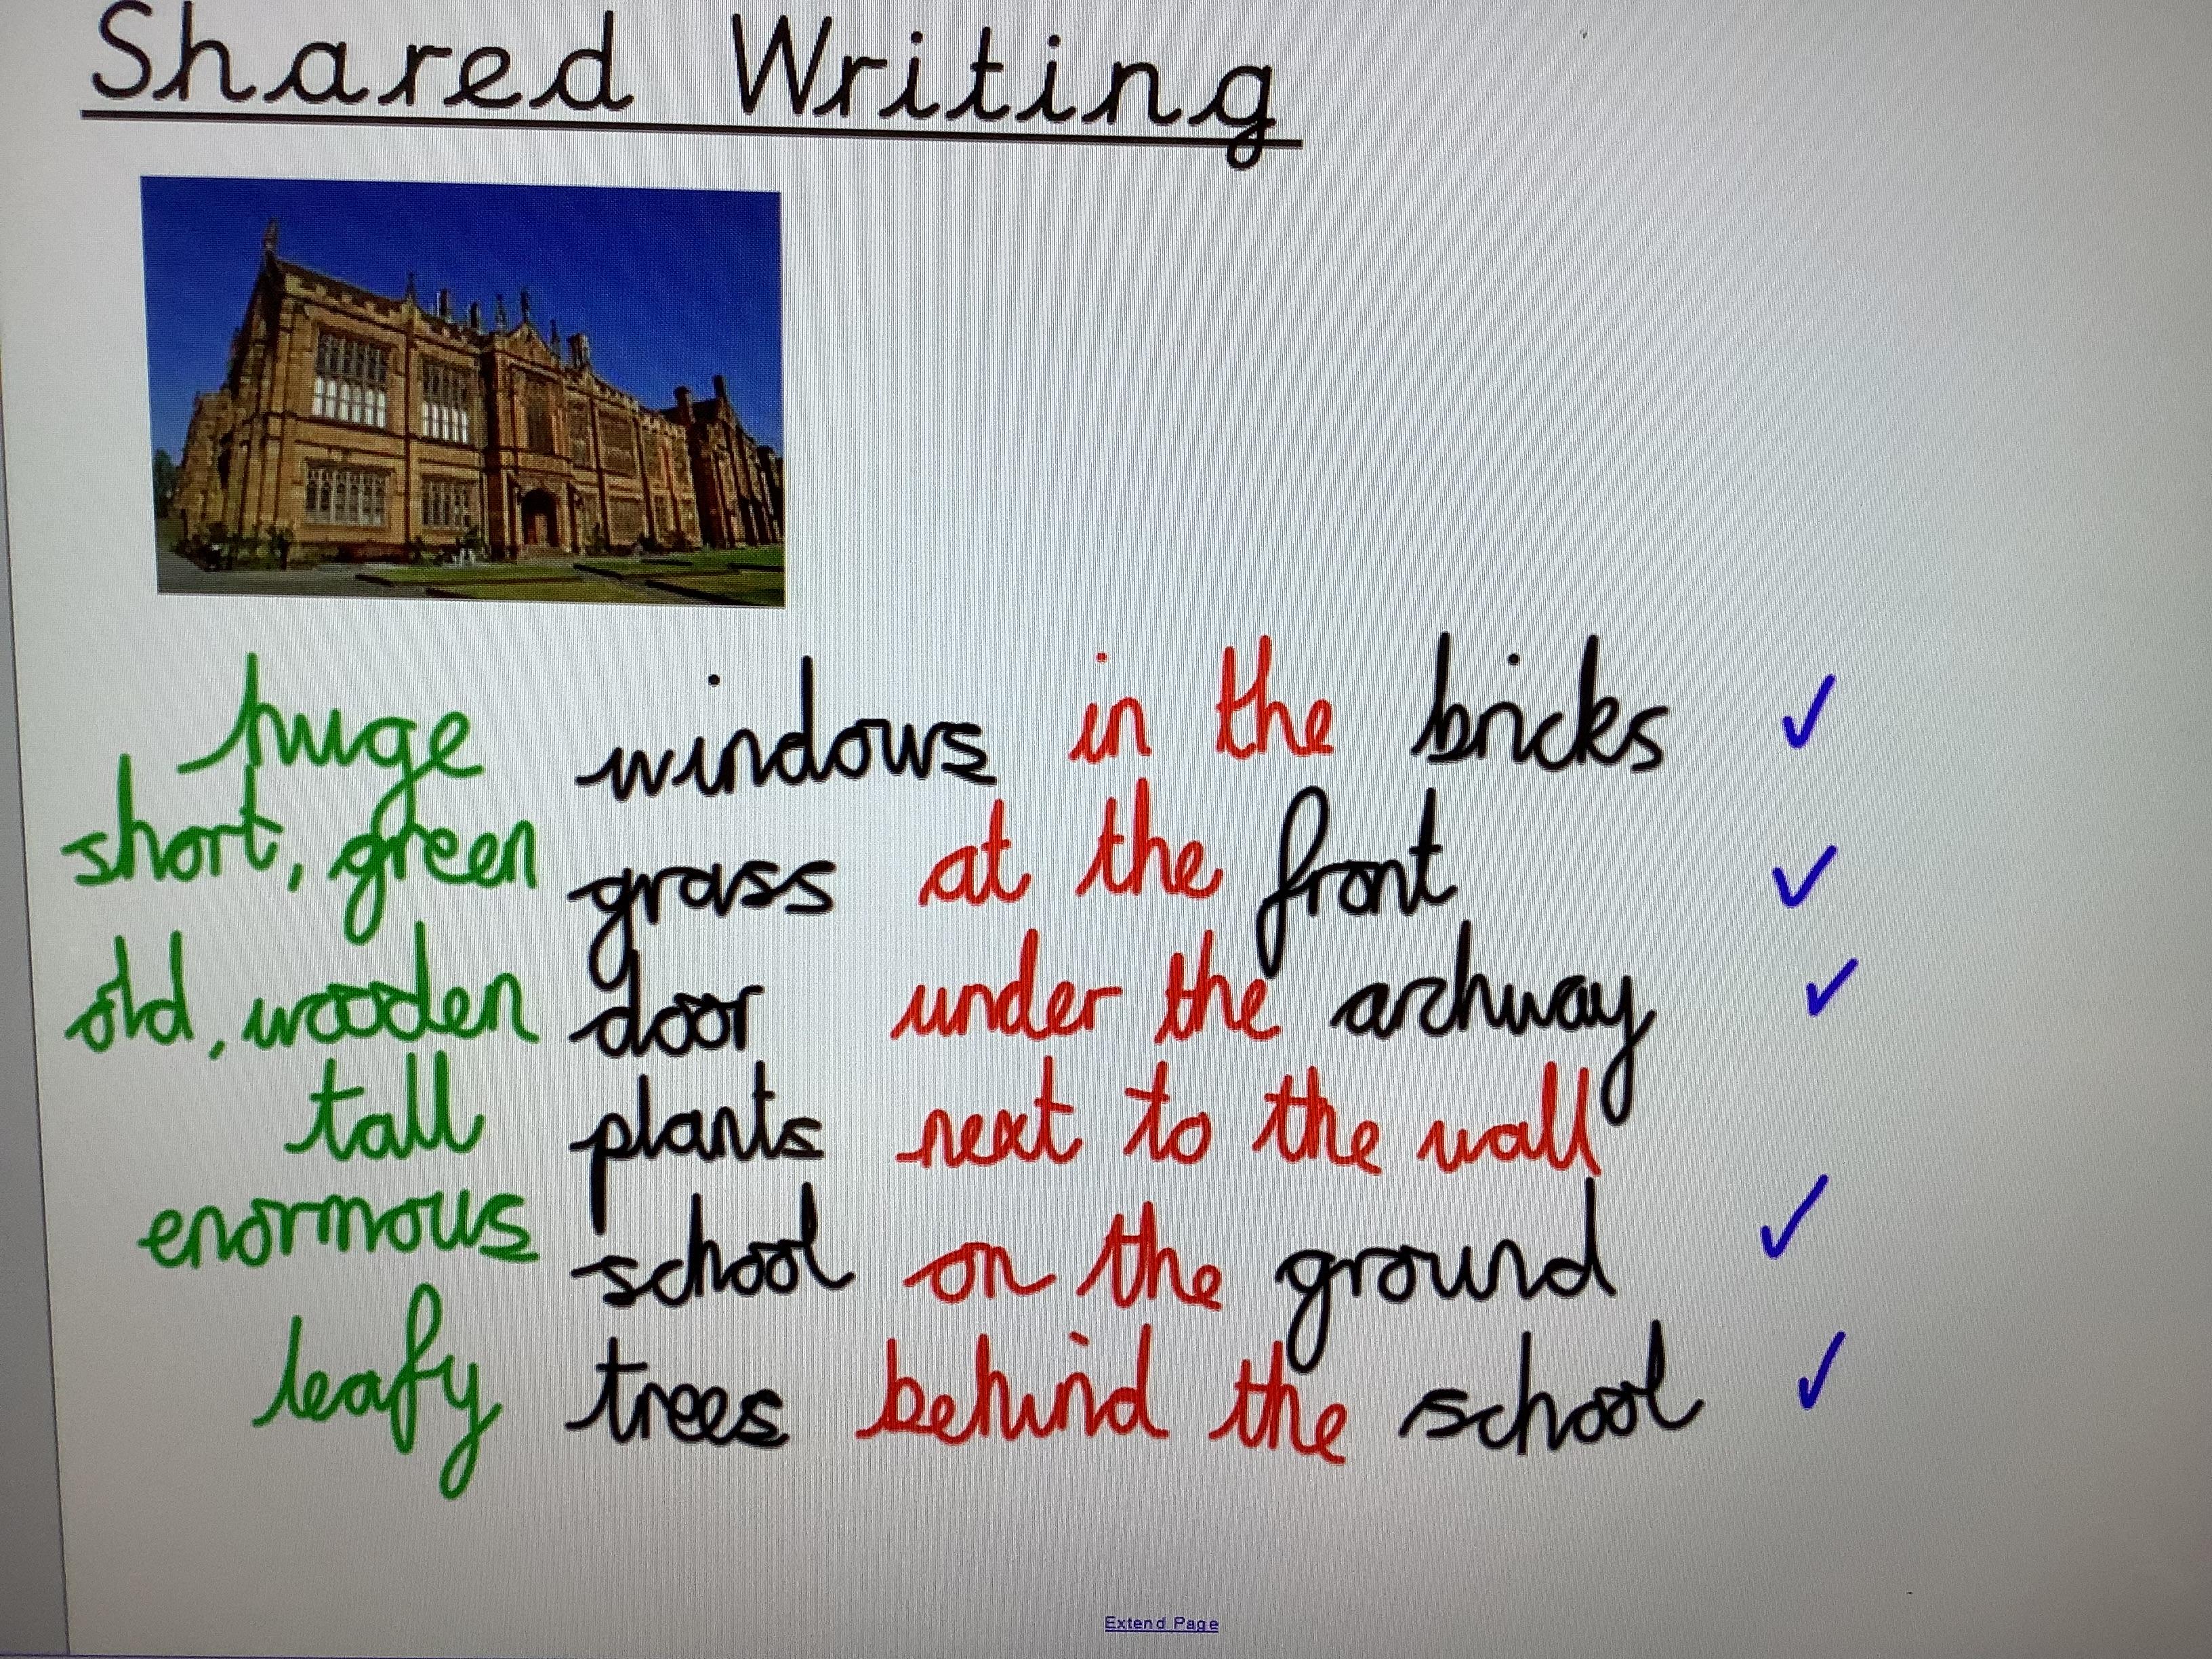 Shared Writing
huge windows in the bricks ✓
short, green grass at the front ✓
old, wooden door under the archway ✓
tall plants next to the wall
enormous school on the ground ✓
leafy trees behind the school ✓
Extend Page